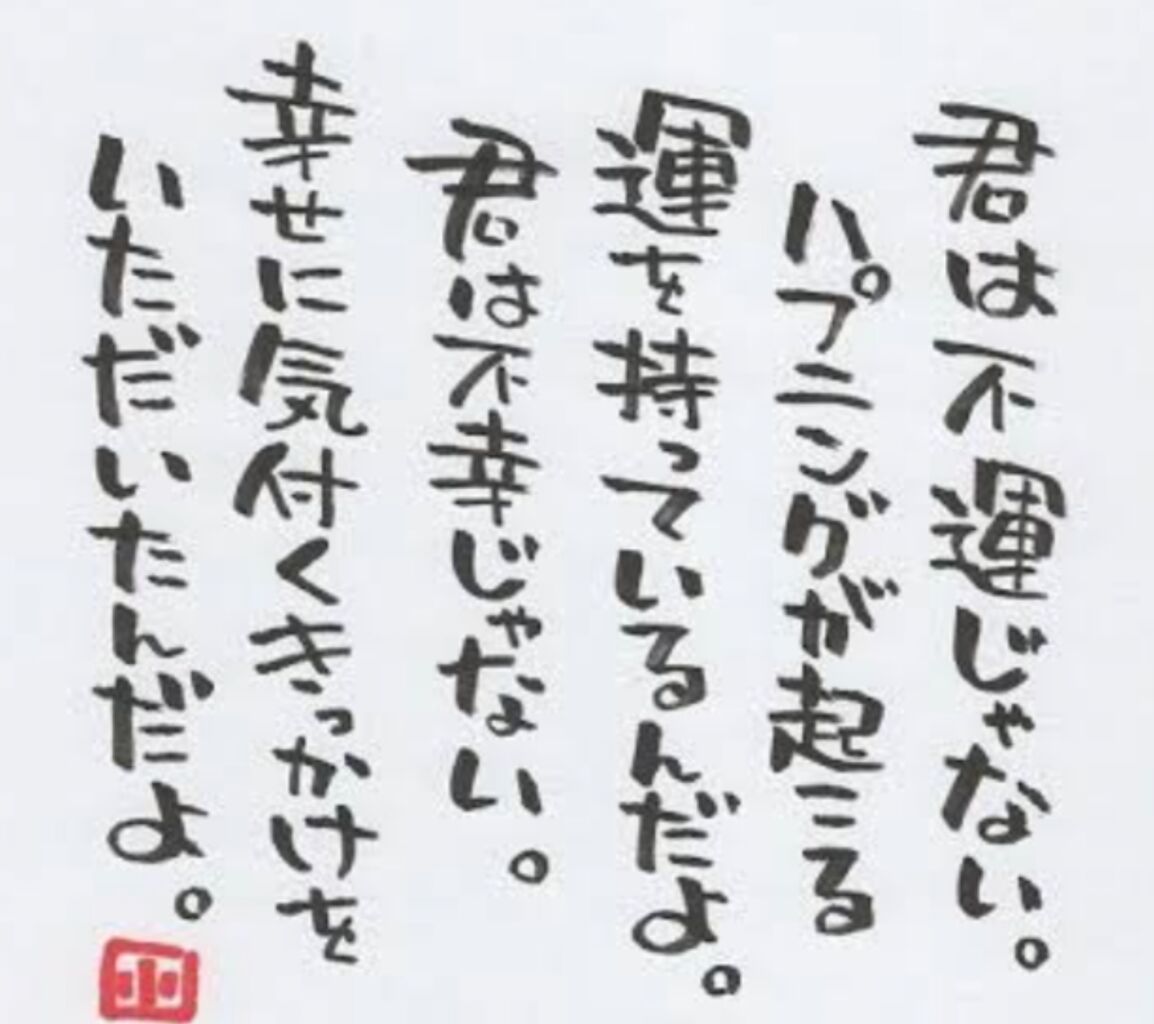 君は不運じゃない。
ハプニングが起こる
運を持っているんだよ。
君は不幸じゃない。
幸せに気付くきっかけを
いただいたんだよ。